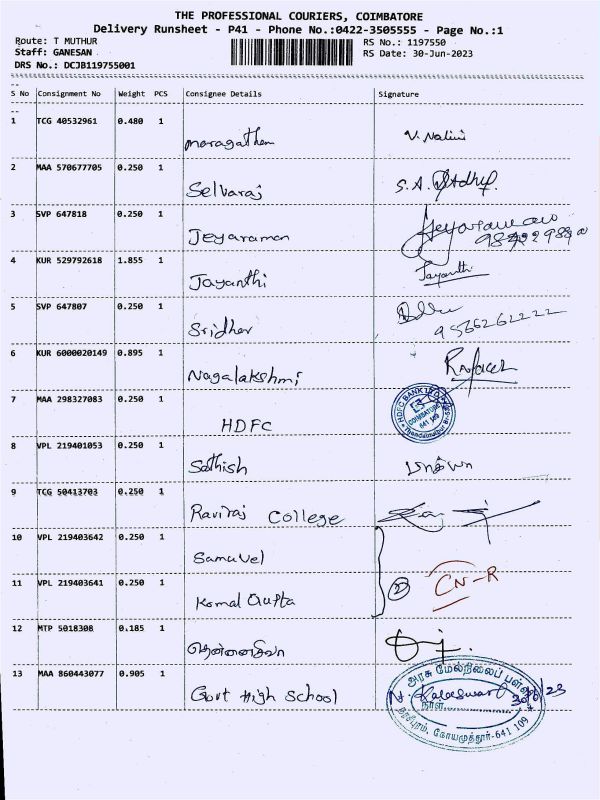 THE PROFESSIONAL COURIERS, COIMBATORE
Delivery Runsheet - P41 - Phone No.:0422-3505555 - Page No.:1
Route: T MUTHUR RS No.: 1197550
Staff: GANESAN RS Date: 30-Jun-2023
DRS No.: DCJB119755001
S No Consignment No Weight PCS Consignee Details Signature
1 TCG 40532961 0.480 1 Maragatham V. Nalini
2 MAA 570677705 0.250 1 Selvaraj S.A.
3 SVP 647818 0.250 1 Jeyaraman Jeyaraman
4 KUR 529792618 1.855 1 Jayanthi Jayanthi
5 SVP 647807 0.250 1 Sridher
9566262222
6 KUR 6000020149 0.895 1 Nagalakshmi
7 MAA 298327083 0.250 1 HDFC HDFC BANK LTD COIMBATORE 641 109
8 VPL 219401053 0.250 1 Sathish
9 TCG 50413703 0.250 1 Raviraj College
10 VPL 219403642 0.250 1 Samuvel
11 VPL 219403641 0.250 1 Komal Gupta (2) CN-R
12 MTP 5018308 0.185 1 தென்னைதிவா
13 MAA 860443077 0.905 1 Govt High School
அரசு மேல்நிலைப் பள்ளி
நாள்
கோயமுத்தூர்-641 109